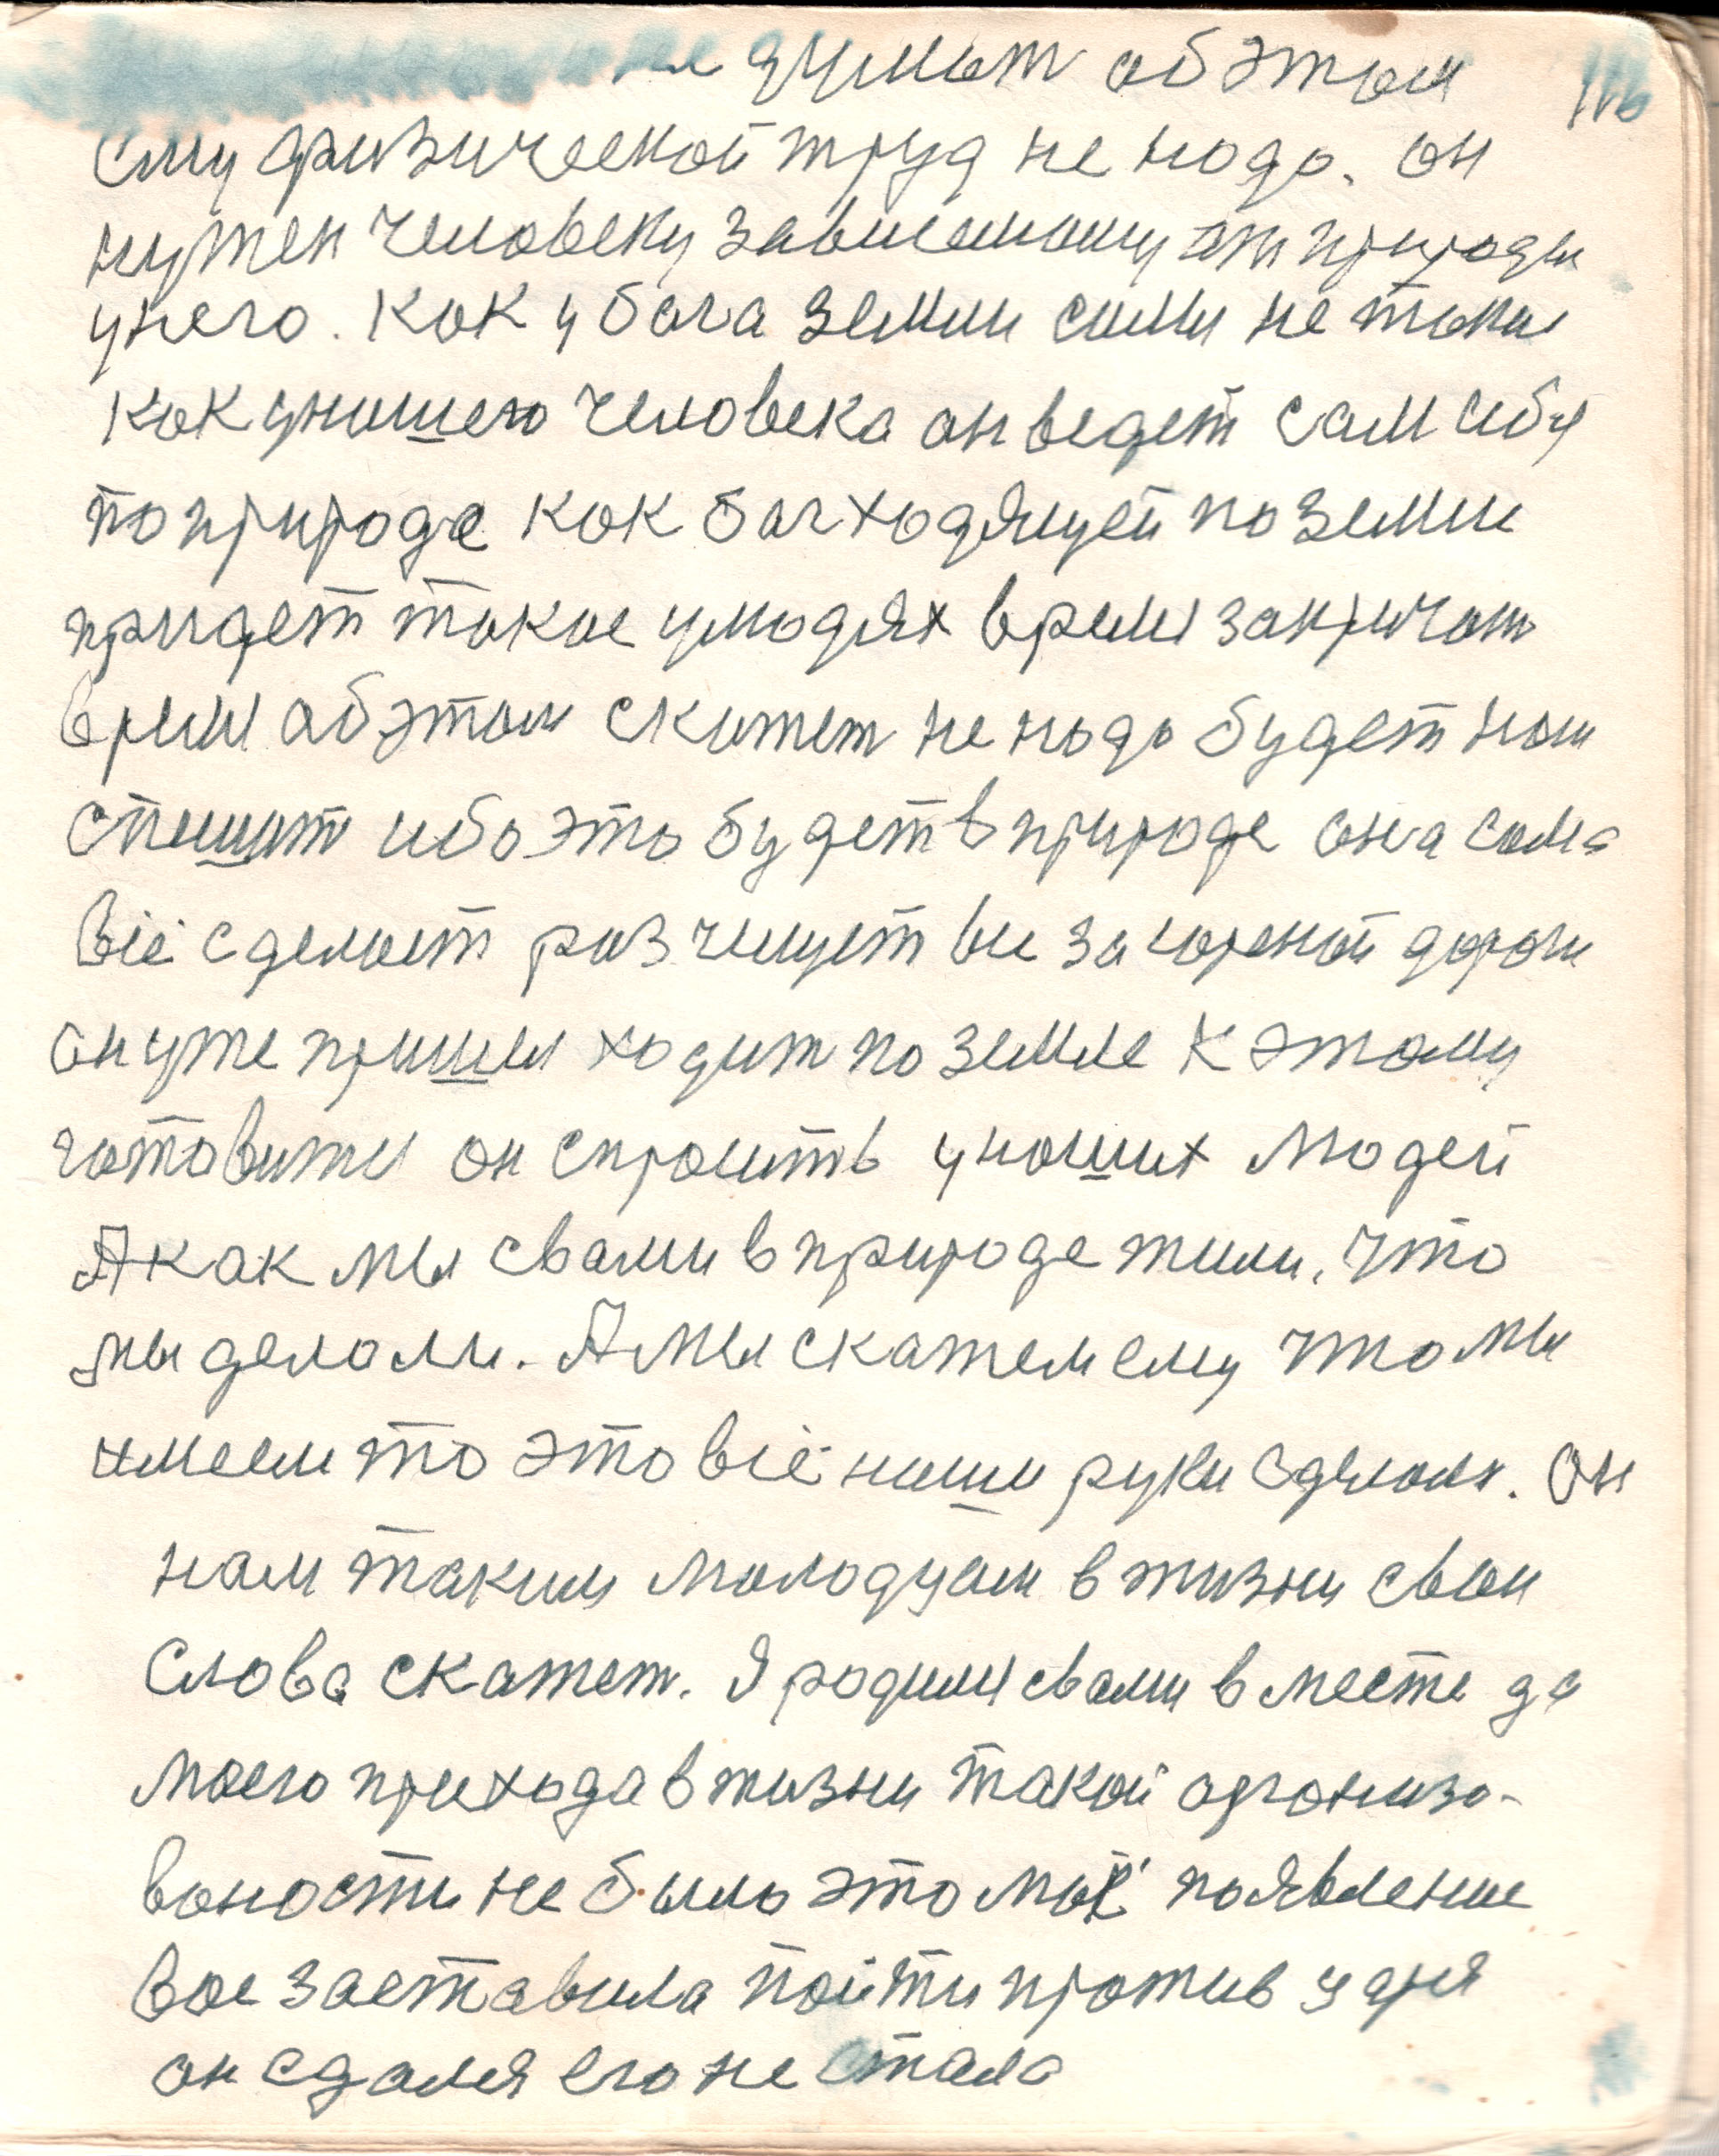 не думает об этом 116
ему физической труд не надо. он
нужен человеку зависемому от природы
унего. как у бога земли силы не такие
как унашего человека он ведет сам себя
по природе как бог ходящей по земли
придет такое улюдях время закричат
время об этом скажет не надо будет нам
спешит ибо это будет в природе она сама
всё сделает разчищет все дороги
он уже пришел ходит по земле к этому
готовится он спроить унаших людей
А как мы свами в природе жили, что
мы делали. А мы скажем ему что мы
имеем то это всё наши руки сделали. Он
нам таким молодцам в жизни свои
слова скажет. Я родился свами в месте до
моего прихода в жизни такой аргониза-
воности не было это моё появление
вас заставила пойти против царя
он сдался его не стало